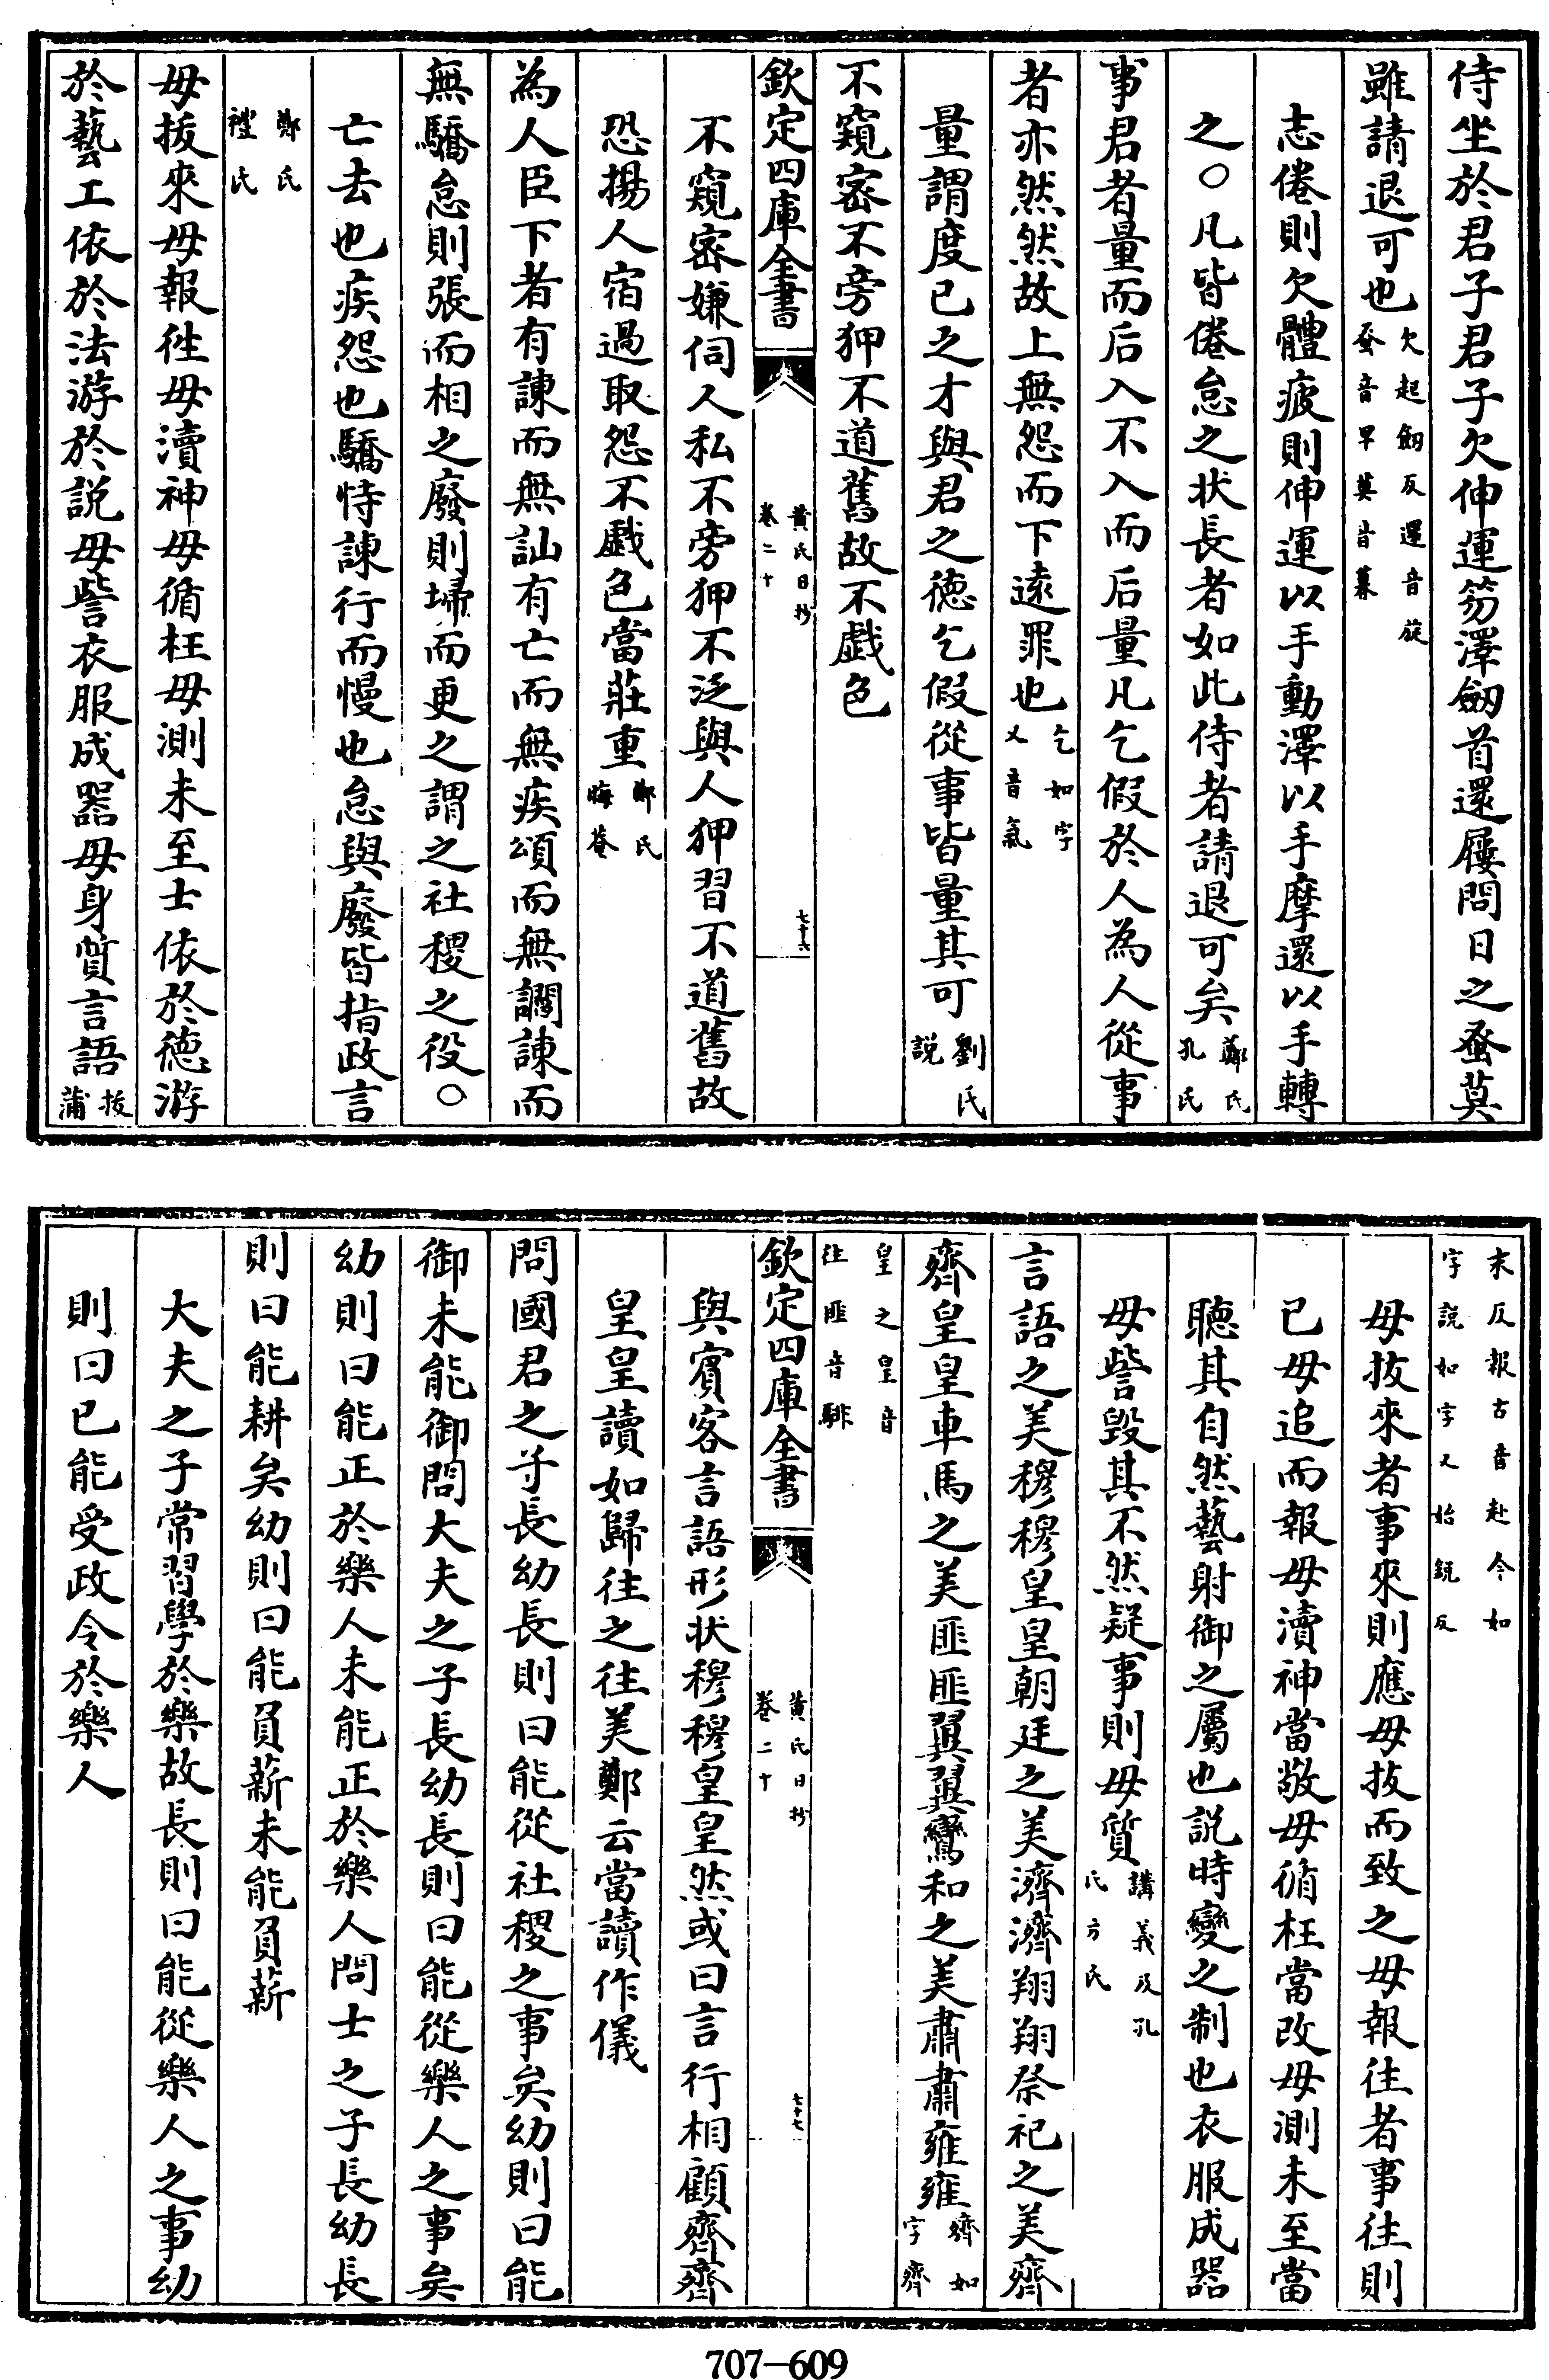 侍坐於君子君子欠伸運笏澤劒首還屨問日之蚤莫
雖請退可也欠起劒反還音旋蚤音早莫音暮
志倦則欠體疲則伸運以手動澤以手摩還以手轉
之○凡皆倦怠之状長者如此侍者請退可矣鄭氏孔氏
事君者量而后入不入而后量凡乞假於人為人從事
者亦然然故上無怨而下逺罪也乞如字又音氣
量謂度已之才與君之徳乞假從事皆量其可劉氏說
不窺宻不旁狎不道舊故不戯色
欽定四庫全書
黃氏日抄
卷二十
七十六
不窺宻嫌伺人私不旁狎不泛與人狎習不道舊故
恐揚人宿過取怨不戯色當莊重鄭氏晦菴
為人臣下者有諫而無訕有亡而無疾頌而無讇諫而
無驕怠則張而相之廢則埽而更之謂之社稷之役○
亡去也疾怨也驕恃諫行而慢也怠與廢皆指政言
鄭氏禮氏
毋拔來毋報徃毋瀆神毋循枉毋測未至士依於徳游
於藝工依於法游於説毋訾衣服成器毋身質言語拔蒲
末反報古音赴今如字説如字又始鋭反
毋拔來者事來則應毋拔而致之毋報往者事往則
已毋追而報毋瀆神當敬毋循枉當改毋測未至當
聽其自然藝射御之屬也説時變之制也衣服成器
毋訾毀其不然疑事則毋質講義及孔氏方氏
言語之美穆穆皇皇朝廷之美濟濟翔翔祭祀之美齊
齊皇皇車馬之美匪匪翼翼鸞和之美肅肅雍雍齊如字齊
皇之皇音往匪音騑
欽定四庫全書
黃氏日抄
卷二十
七十七
與賓客言語形状穆穆皇皇然或曰言行相顧齊齊
皇皇讀如歸往之往美鄭云當讀作儀
問國君之子長幼長則曰能從社稷之事矣幼則曰能
御未能御問大夫之子長幼長則曰能從樂人之事矣
幼則曰能正於樂人未能正於樂人問士之子長幼長
則曰能耕矣幼則曰能負薪未能負薪
大夫之子常習學於樂故長則曰能從樂人之事幼
則曰已能受政令於樂人
707—609